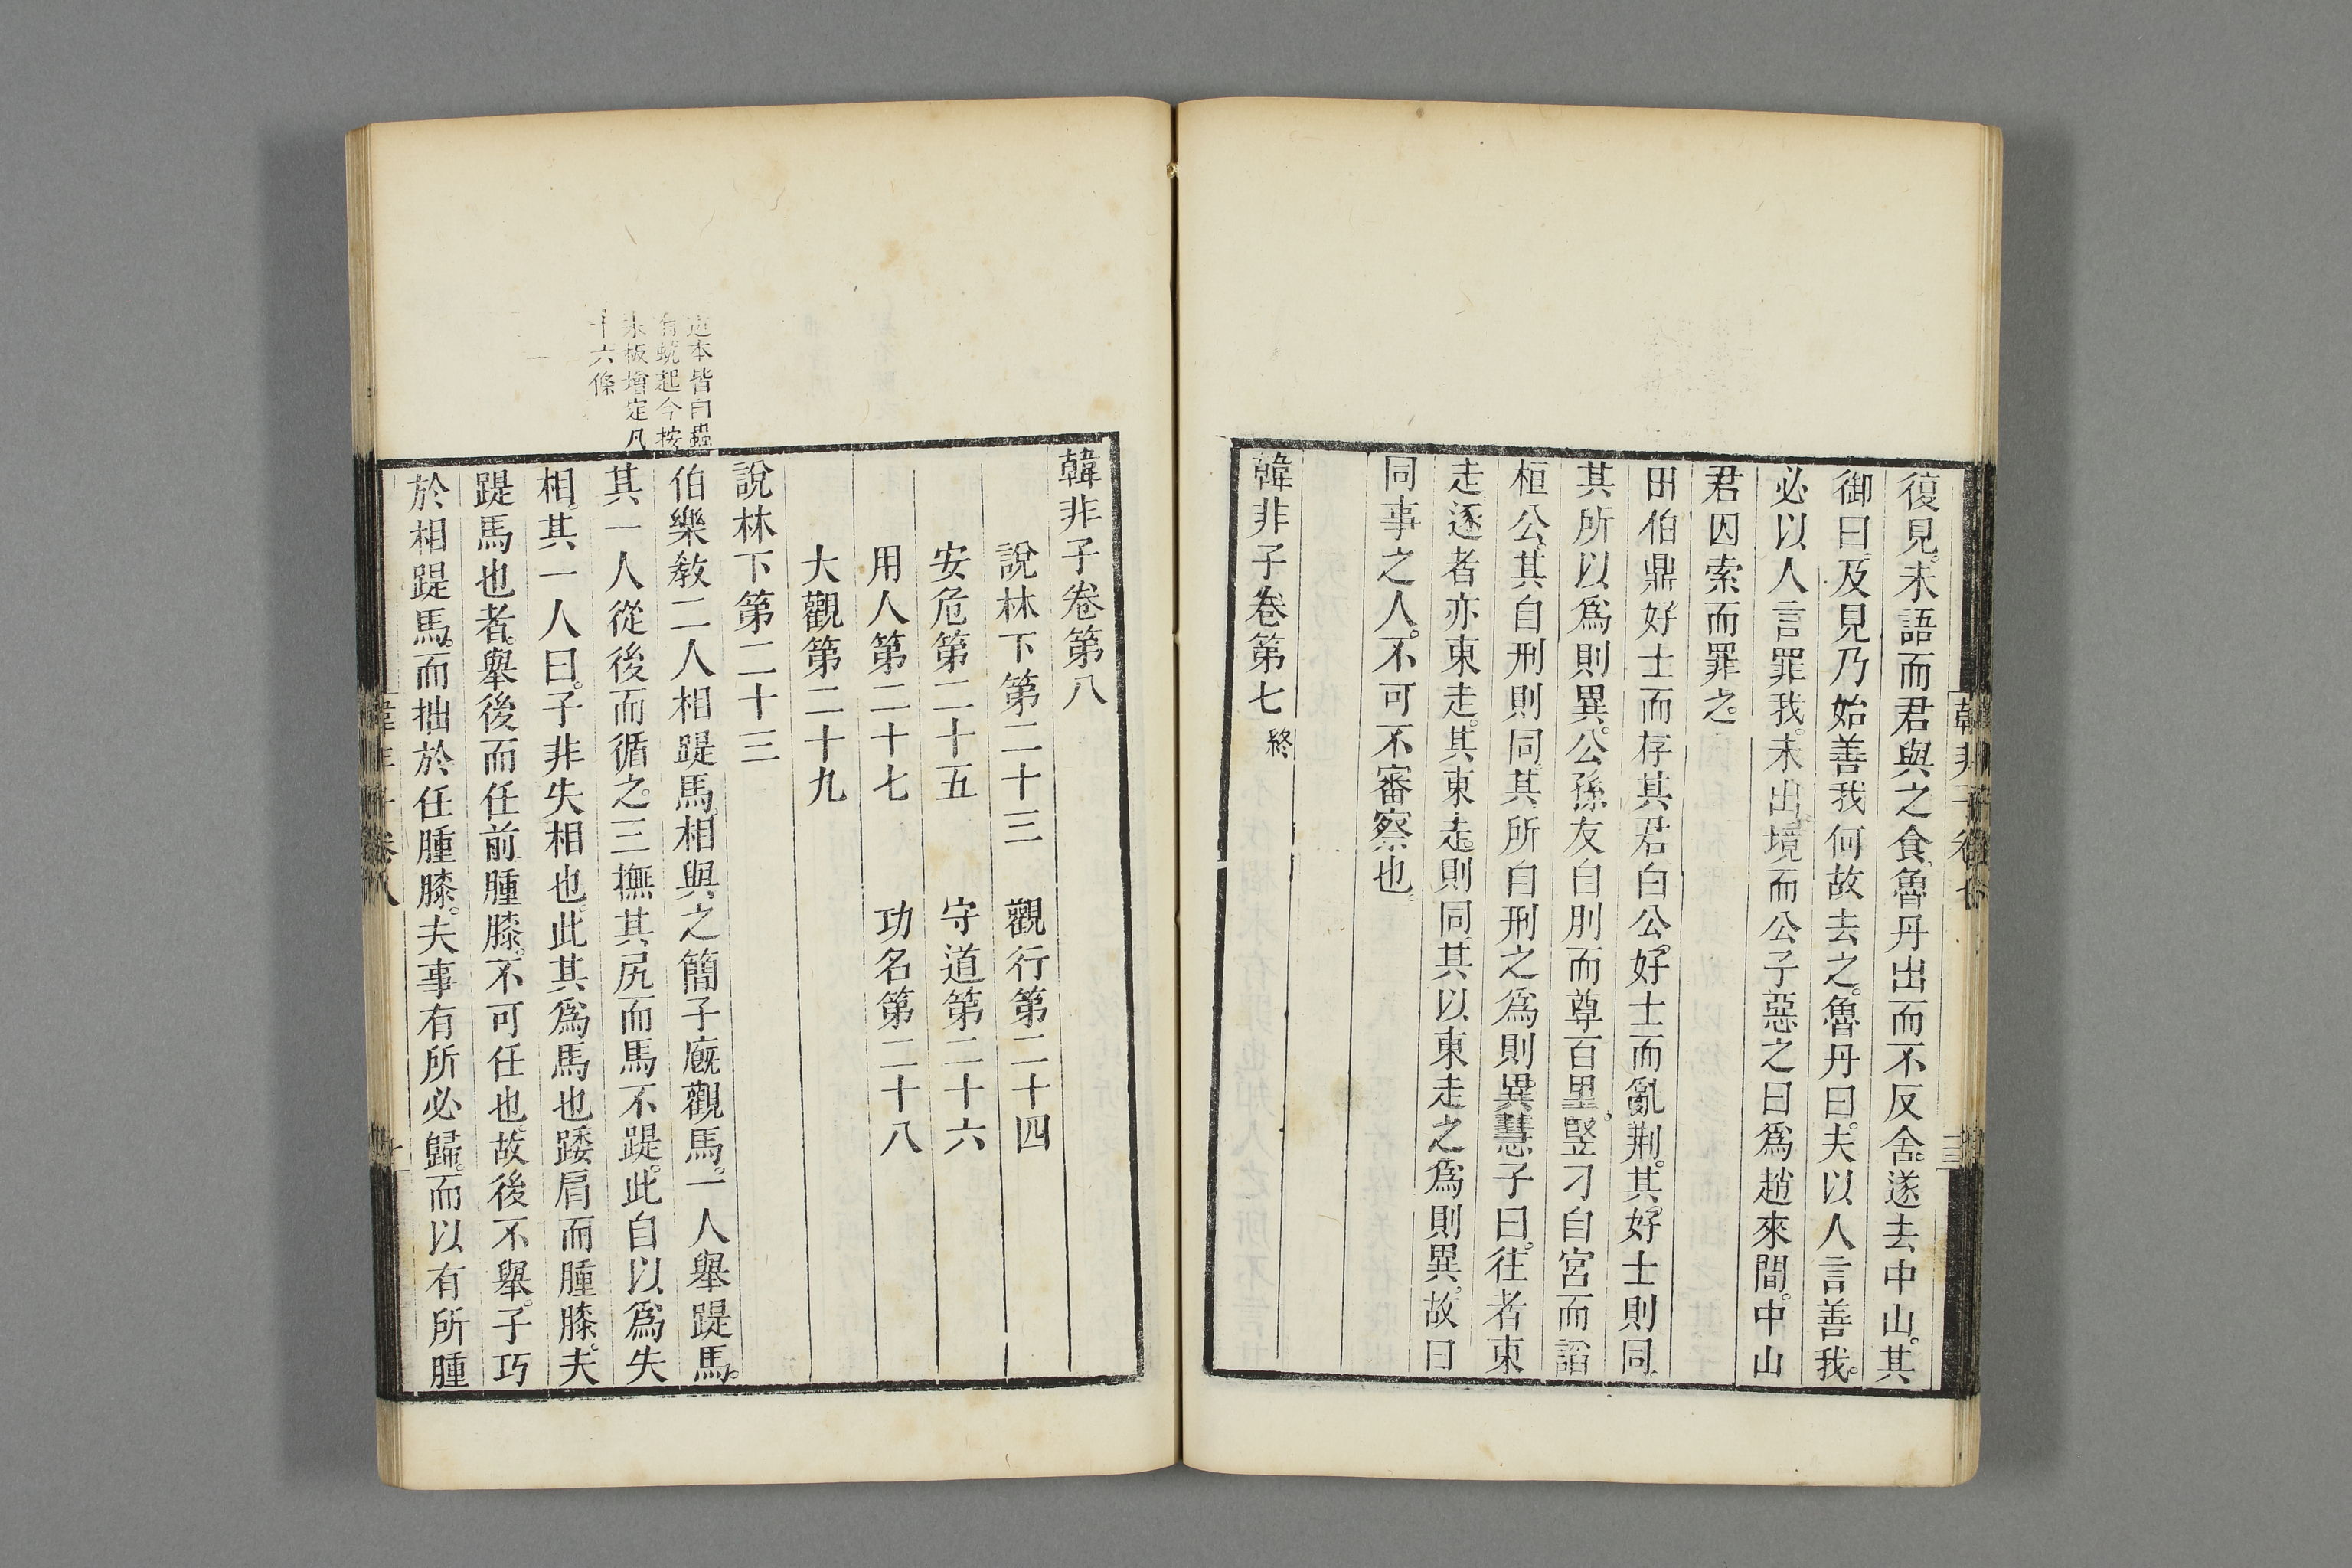 復見。未語而君與之食。魯丹出而不反舍。遂去中山。其
御曰。及見乃始善我。何故去之。魯丹曰。夫以人言善我。
必以人言罪我。未出境而公子惡之曰爲趙來間。中山
君因索而罪之。
田伯鼎好士而存其君。白公。好士而亂荆。其好士則同。
其所以爲則異。公孫友自刖而尊百里。豎刁自宮而諂
桓公。其自刑則同。其所自刑之爲則異。慧子曰。往者東
走。逐者亦東走。其東走。則同。其以東走之爲則異。故曰
同事之人。不可不審察也。
韓非子卷第七 終
韓非子卷第八
說林下第二十三 觀行第二十四
安危第二十五 守道第二十六
用人第二十七 功名第二十八
大觀第二十九
說林下第二十三
伯樂敎二人相踶馬。相與之簡子廐觀馬。一人舉踶馬。
其一人從後而循之。三撫其尻而馬不踶。此自以爲失
相。其一人曰。子非失相也。此其爲馬也踒肩而腫膝。夫
踶馬也者。舉後而任前。腫膝。不可任也。故後不舉。子巧
於相踶馬。而拙於任腫膝。夫事有所必歸。而以有所腫
近本皆自蟲
有蚘起今按
宋板增定凡
十六條
韓非子卷八